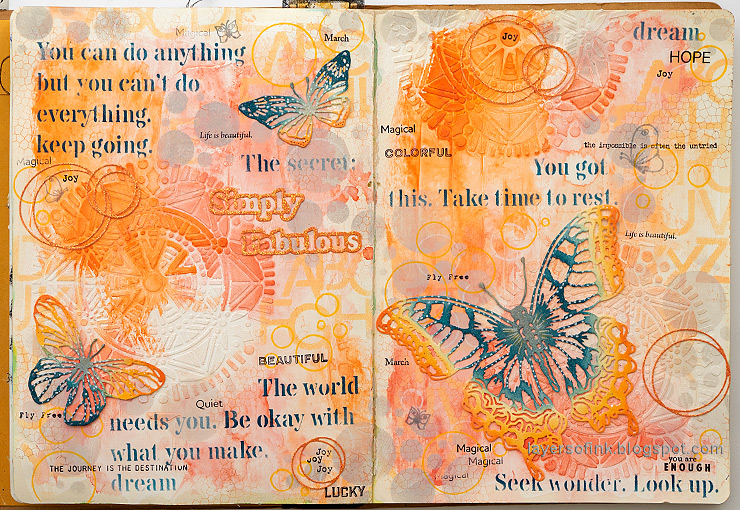 Magical
March
You can do anything
but you can't do
everything.
keep going.
Life is beautiful.
The secret:
Magical
Joy
Simply
Fabulous
BEAUTIFUL
The world
Quiet
Fly Free
needs you. Be okay with
what you make.
Joy
Joy
Joy
THE JOURNEY IS THE DESTINATION
dream
LUCKY
dream
Joy
HOPE
Joy
Magical
COLORFUL
the impossible is often the untried
You got
this. Take time to rest.
Life is beautiful.
Fly Free
March
Magical
layersofink.blogspot.com
Magical
you are
ENOUGH
Magical
Seek wonder. Look up.